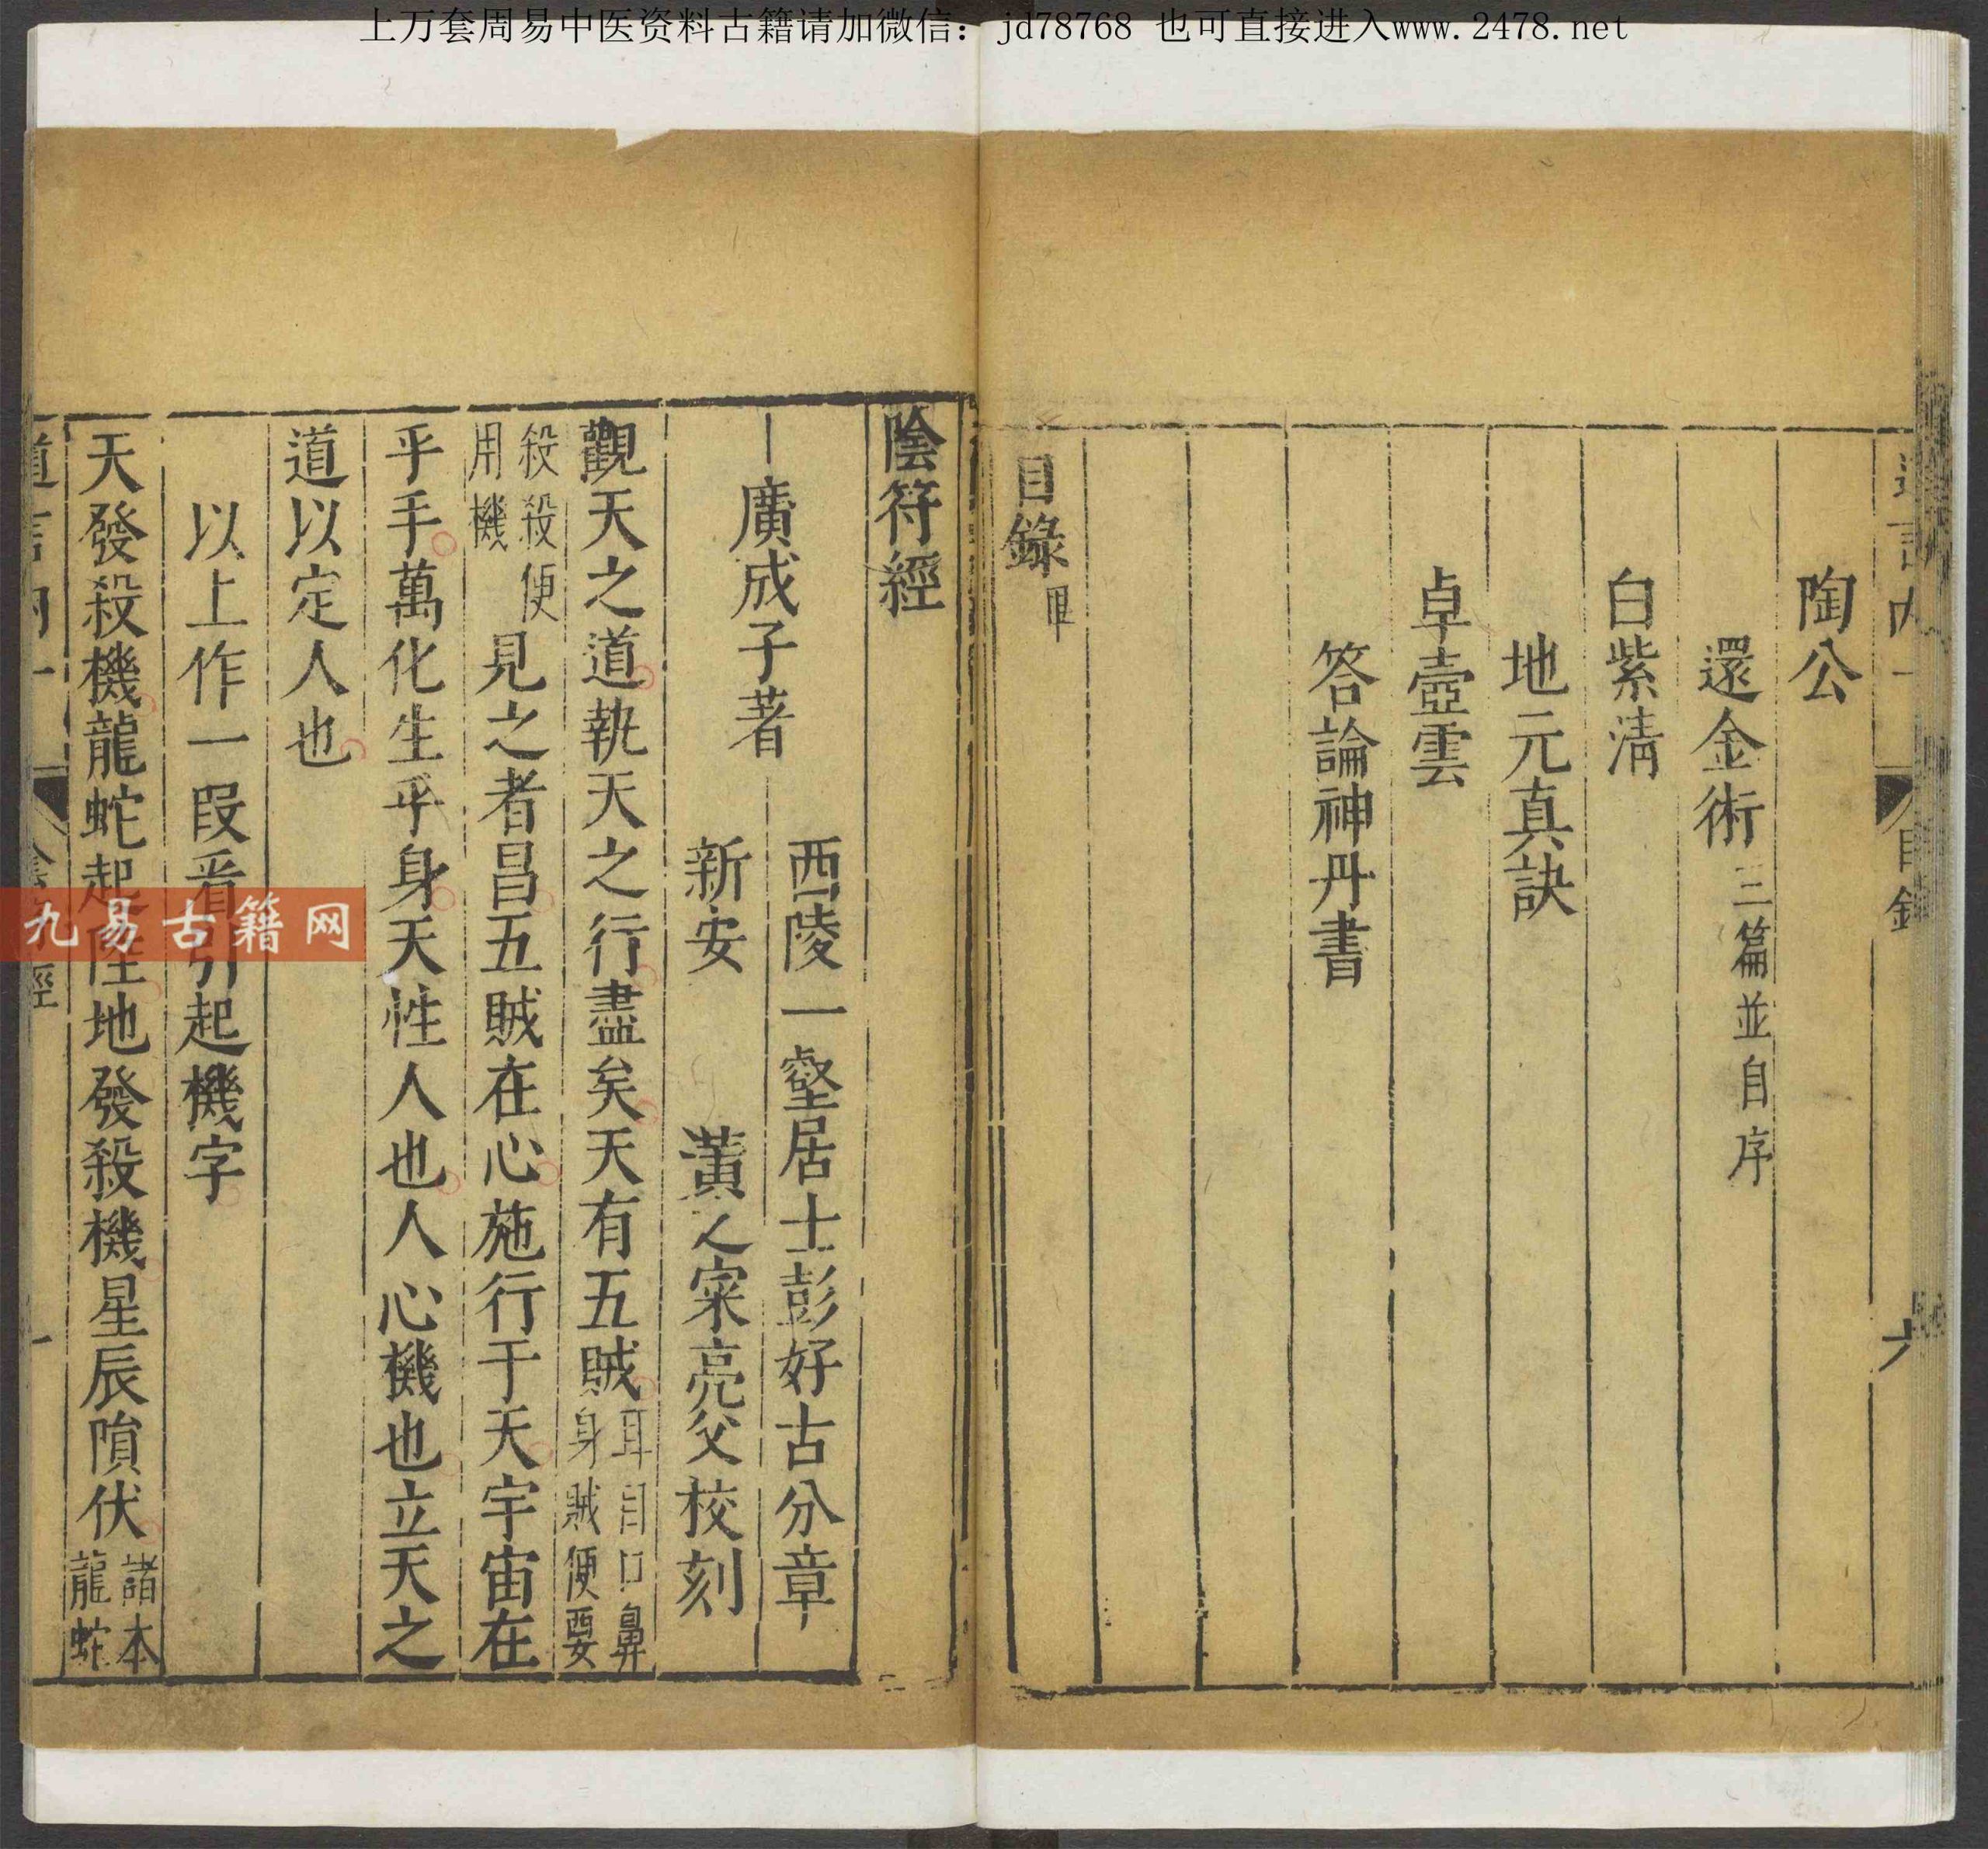 上万套周易中医资料古籍请加微信: jd78768 也可直接进入www.2478.net
陶公
還金術三篇並自序
白紫淸
地元真訣
卓壺雲
答論神丹書
目錄畢
陰符經
廣成子著
西陵一壑居士彭好古分章
新安 黃之寀亮父校刻
觀天之道執天之行盡矣天有五賊耳目口鼻身賊便要
殺殺便用機見之者昌五賊在心施行于天宇宙在
乎手萬化生乎身天性人也人心機也立天之
道以定人也
以上作一段看引起機字
天發殺機龍蛇起陸地發殺機星辰隕伏諸本龍蛇
九易古籍网